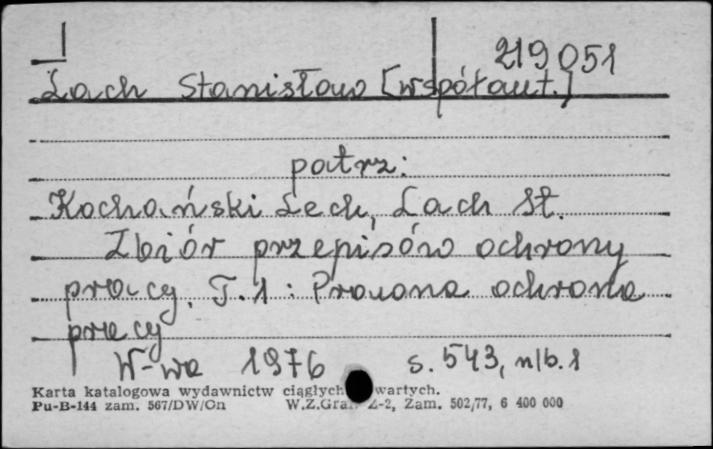 219051
Lach Stanisław [współaut.]
patrz:
Kochański Lech, Lach St.
Zbiór przepisów ochrony
pracy. T.1: Prawna ochrona
pracy
W-wa 1976 s. 543, nlb. 1
Karta katalogowa wydawnictw ciągłych wartych.
Pu-B-144 zam. 567/DW/Gn W.Z.Graf. Z-2, Zam. 502/77, 6 400 000